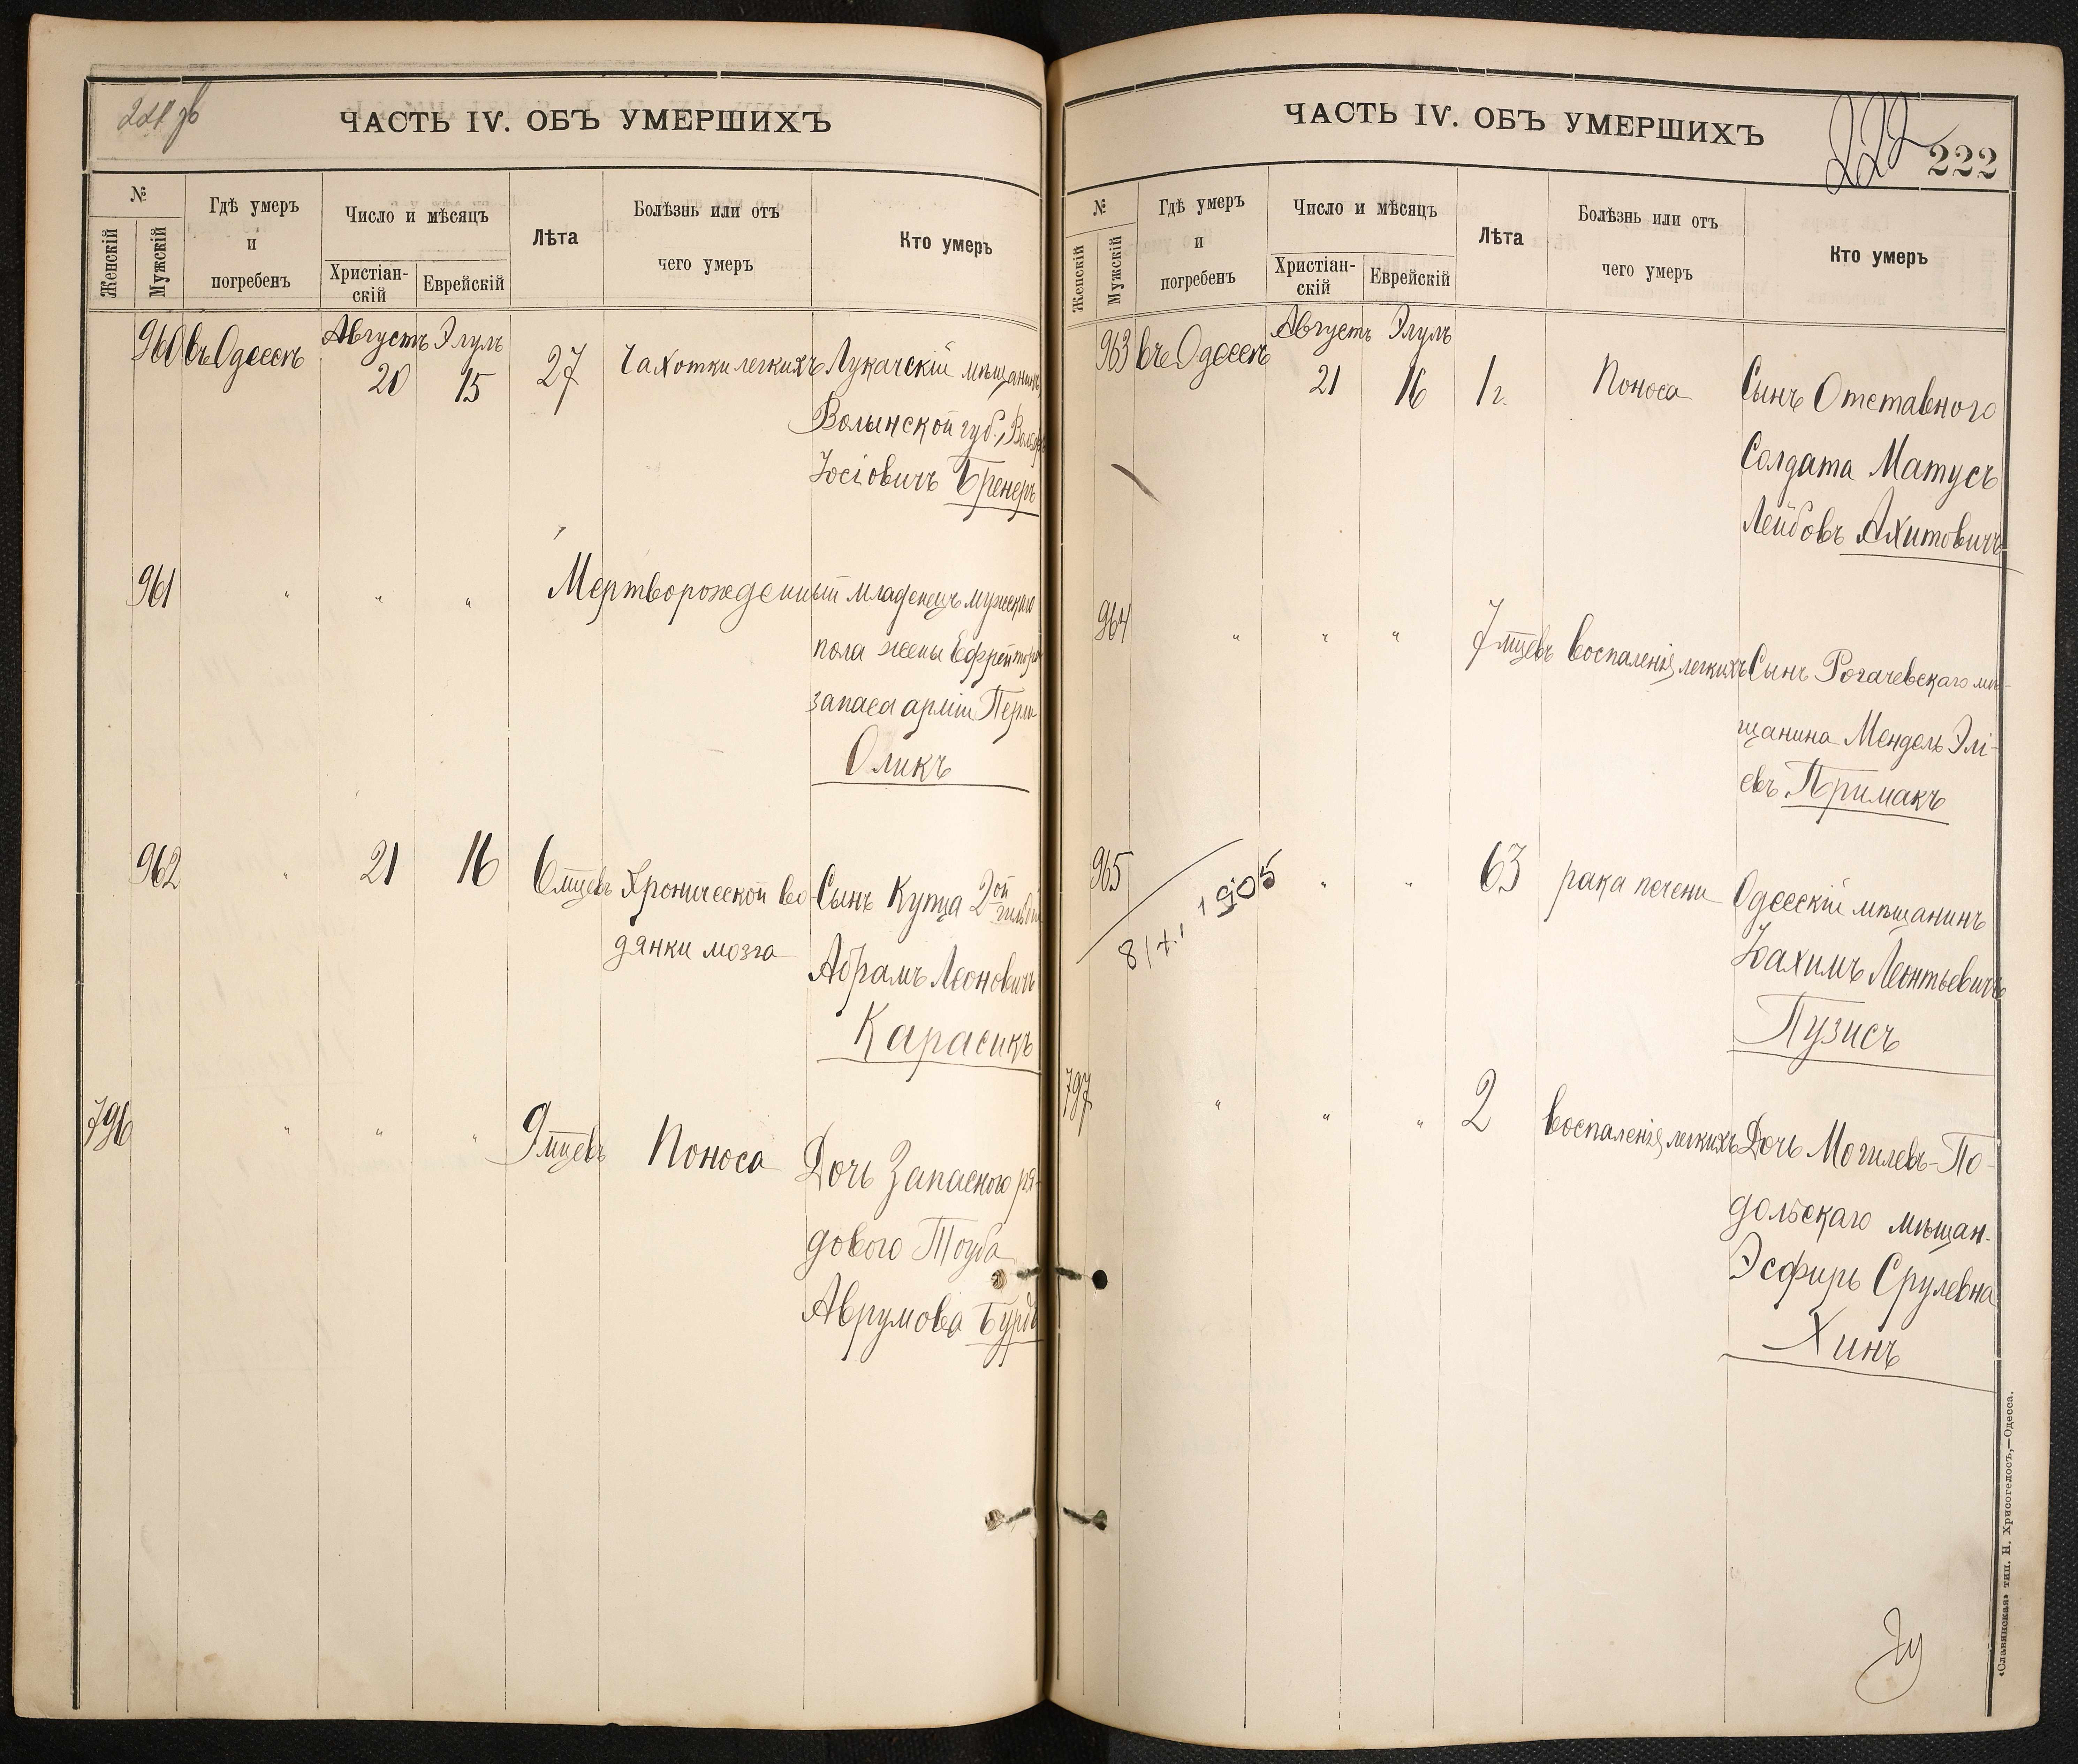 ЧАСТЬ IV. ОБЪ УМЕРШИХЪ
№
Женскій
Мужскій
Гдѣ умеръ
и
погребенъ
Число и мѣсяцъ
Христіан-
скій
Еврейскій
Лѣта
Болѣзнь или отъ
чего умеръ
Кто умеръ
960 въ Одессѣ Августъ Элулъ
20 15 27 Чахотки легкихъ Лукачскій мѣщанинъ
Волынской губ.,
Іосіовичъ Бренеръ
961 " " " Мертворожденный младенецъ мужскаго
пола жены Ефрейтора
запаса арміи
Оликъ
962 " 21 16 6 мцевъ Хронической во- Сынъ Купца 2ой гильдіи
дянки мозга Абрамъ Леоновичъ
Карасикъ
796 " " " 9 мцевъ Поноса Дочь Запасного ря-
дового Тауба
Аврумова
ЧАСТЬ IV. ОБЪ УМЕРШИХЪ
222
222
№
Женскій
Мужскій
Гдѣ умеръ
и
погребенъ
Число и мѣсяцъ
Христіан-
скій
Еврейскій
Лѣта
Болѣзнь или отъ
чего умеръ
Кто умеръ
963 въ Одессѣ Августъ Элулъ
21 16 1 г. Поноса Сынъ Отставного
Солдата Матусъ
Лейбовъ Ахитовичъ
964 " " " 7 мцевъ воспаленія легкихъ Сынъ Рогачевскаго мѣ-
щанина Мендель Элі-
евъ Примакъ
965 " " 63 рака печени Одесскій мѣщанинъ
8/XI 1905
Іоахимъ Леонтьевичъ
Пузисъ
797 " " " 2 воспаленія легкихъ Дочь Могилевъ-По-
дольскаго мѣщан.
Эсфирь Срулевна
Хинъ
«Славянская» тип. Н. Хрисогелосъ,—Одесса.